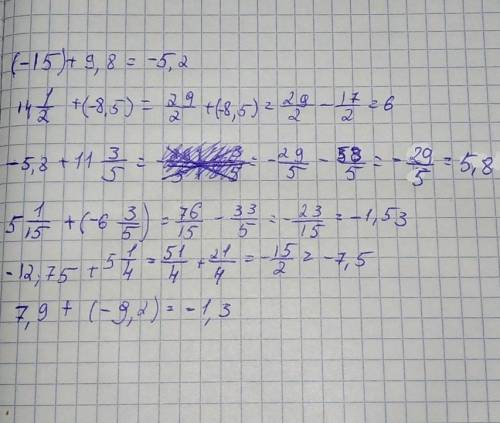 (-15) + 9,8 = -5,2
14 1/2 + (-8,5) = 29/2 + (-8,5) = 29/2 - 17/2 = 6
-5,8 + 11 3/5 = = -29/5 - 58/5 = -29/5 = 5,8
5 1/15 + (-6 3/5) = 76/15 - 33/5 = -23/15 = -1,53
-12,75 + 5 1/4 = 51/4 + 21/4 = -15/2 = -7,5
7,9 + (-9,2) = -1,3